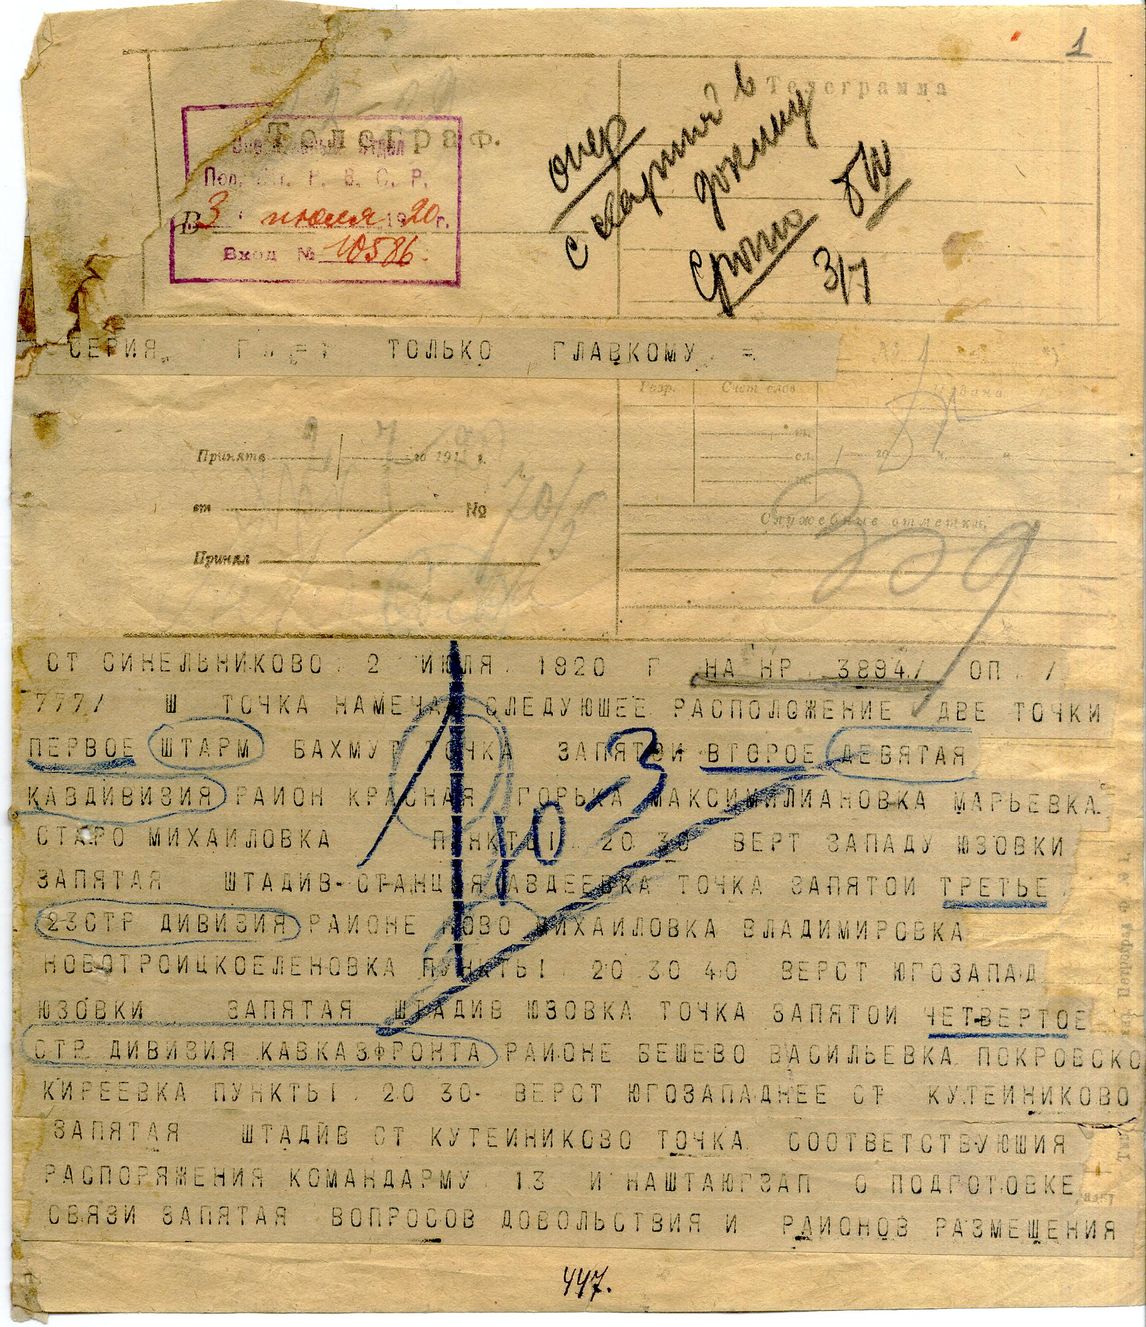 1
Телеграмма
Телеграф.
Пол. Шт. Р. В. С. Р.
В 3 июля 1920 г.
Вход № 10586.
опер
с картой в
Срочно
3/7
СЕРИЯ Г = ТОЛЬКО ГЛАВКОМУ =
№
Разр.
Счет слов
Принята 2/7 го 191 г.
от № 70/5
Служебные отметки.
Принял
309
СТ СИНЕЛЬНИКОВО 2 ИЮЛЯ 1920 Г НА НР 3894/ ОП /
777/ Ш ТОЧКА НАМЕЧАЮ СЛЕДУЮШЕЕ РАСПОЛОЖЕНИЕ ДВЕ ТОЧКИ
ПЕРВОЕ ШТАРМ БАХМУТ ТОЧКА ЗАПЯТОИ ВТОРОЕ ДЕВЯТАЯ
КАВДИВИЗИЯ РАИОН КРАСНАЯ ГОРЬКА МАКСИМИЛИАНОВКА МАРЬЕВКА
СТАРО МИХАИЛОВКА ПУНКТЫ 20 30 ВЕРТ ЗАПАДУ ЮЗОВКИ
ЗАПЯТАЯ ШТАДИВ-СТАНЦИЯ АВДЕЕВКА ТОЧКА ЗАПЯТОИ ТРЕТЬЕ
23СТР ДИВИЗИЯ РАИОНЕ НОВО МИХАИЛОВКА ВЛАДИМИРОВКА
НОВОТРОИЦКОЕЛЕНОВКА ПУНКТЫ 20 30 40 ВЕРСТ ЮГОЗАПАД
ЮЗОВКИ ЗАПЯТАЯ ШТАДИВ ЮЗОВКА ТОЧКА ЗАПЯТОИ ЧЕТВЕРТОЕ
СТР ДИВИЗИЯ КАВКАЗФРОНТА РАИОНЕ БЕШЕВО ВАСИЛЬЕВКА ПОКРОВСКО
КИРЕЕВКА ПУНКТЫ 20 30- ВЕРСТ ЮГОЗАПАДНЕЕ СТ КУТЕИНИКОВО
ЗАПЯТАЯ ШТАДИВ СТ КУТЕИНИКОВО ТОЧКА СООТВЕТСТВУЮШИЯ
РАСПОРЯЖЕНИЯ КОМАНДАРМУ 13 И НАШТАЮГЗАП О ПОДГОТОВКЕ
СВЯЗИ ЗАПЯТАЯ ВОПРОСОВ ДОВОЛЬСТВИЯ И РАИОНОВ РАЗМЕЩЕНИЯ
447.